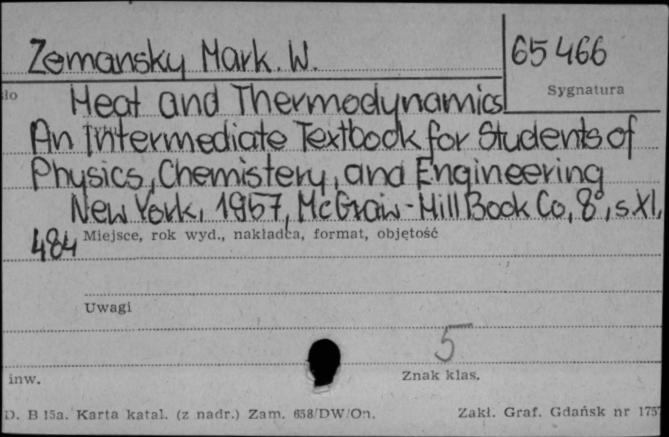 Zemansky Mark. W.
65 466
Sygnatura
ło
Heat and Thermodynamics
An Intermediate Textbook for Students of
Physics, Chemistery, and Engineering
New York, 1957, McGraw-Hill Book Co, 8°, s. XI,
484
Miejsce, rok wyd., nakładca, format, objętość
Uwagi
5
inw.
Znak klas.
D. B 15a. Karta katal. (z nadr.) Zam. 658/DW/On.
Zakł. Graf. Gdańsk nr 1757